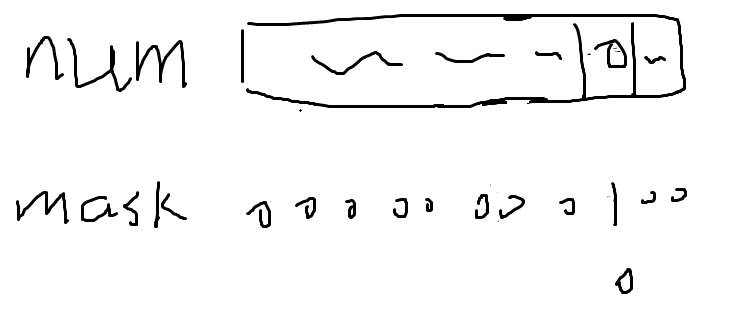 num 0
mask 0 0 0 0 0 0 0 0 1 0 0
0